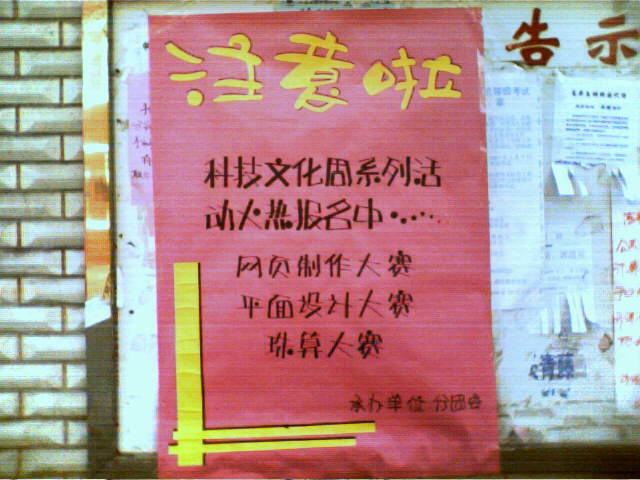 注意啦
告示
科技文化周系列活
动火热报名中······
网页制作大赛
平面设计大赛
珠算大赛
承办单位 分团委